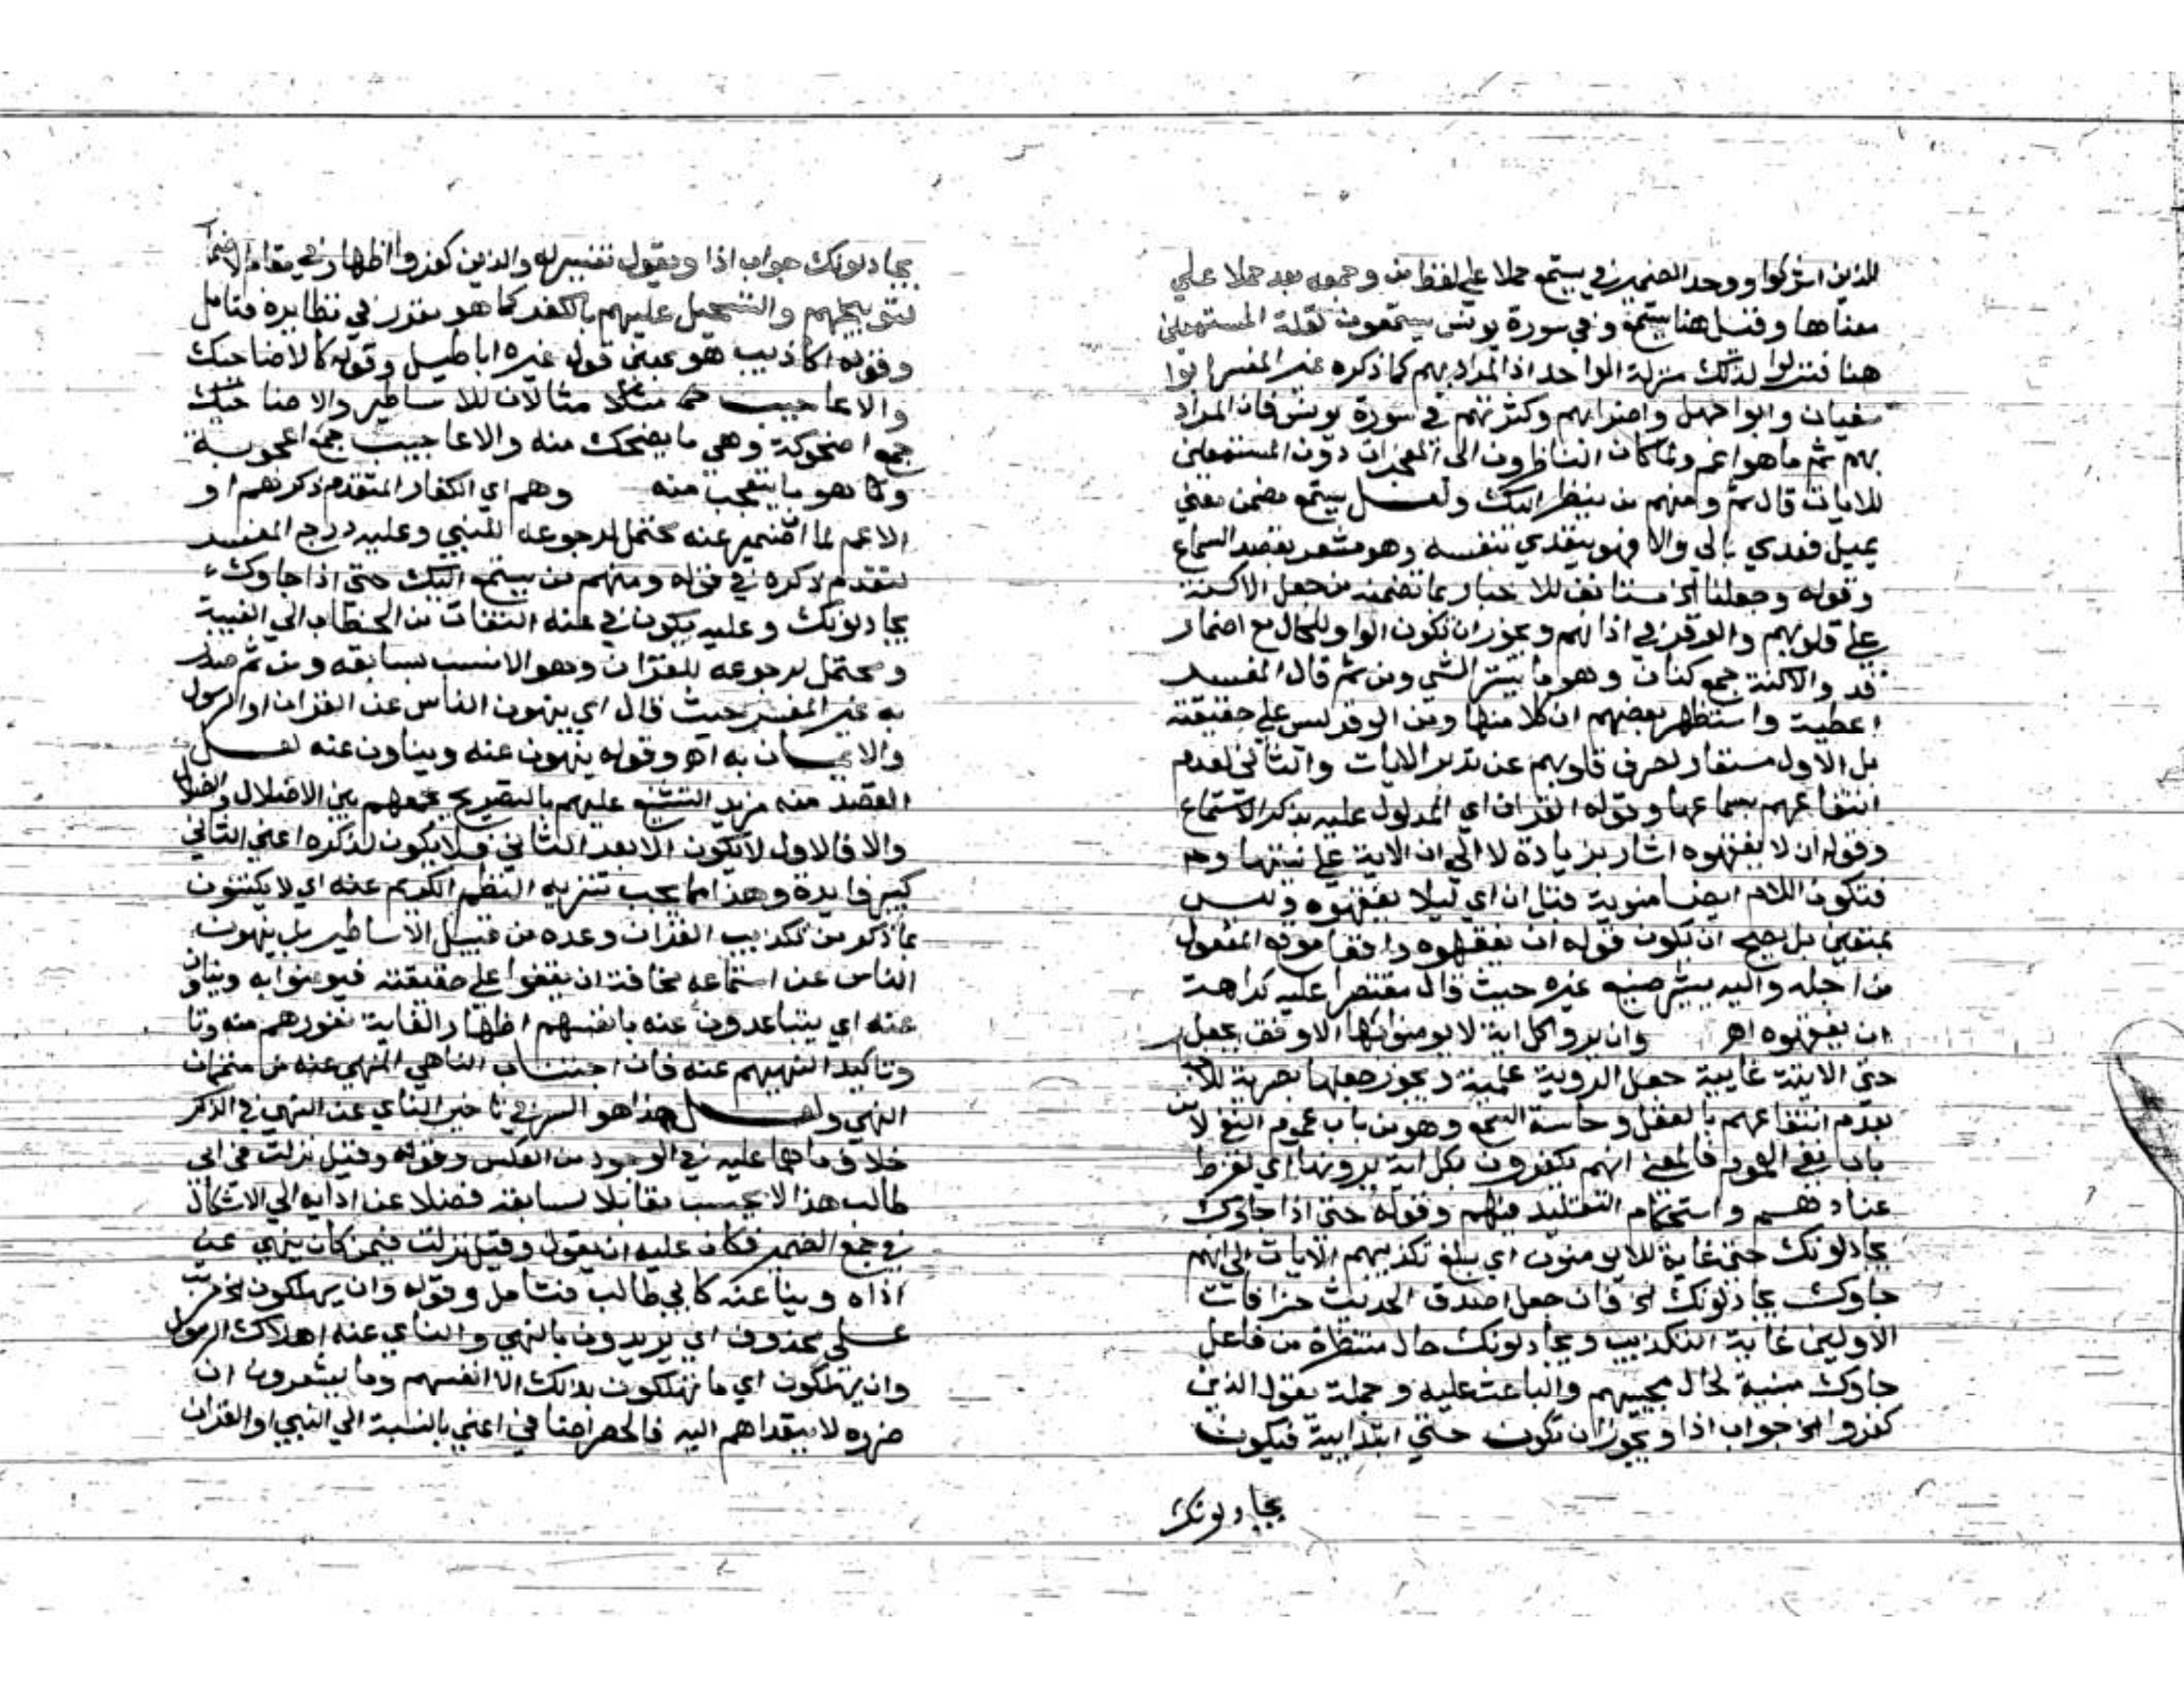 للذين اشركوا ووحد الضمير في يستمع حملا على لفظ من وجمعه بعد حملا علي
معناها وقيل هنا يستمع وفي سورة يونس يستمعون لقلة المستمعين
هنا فنزلوا لذلك منزلة الواحد اذ المراد بهم كما ذكره غير المفسر ابوا
سفيان وابوا جهل واضرابهم وكثرتهم في سورة يونس فان المراد
بهم ثم ما هو اعم ولما كان الناظرون الى المعجزات دون المستمعين
للايات قال ثم ومنهم من ينظر اليك ولعل يستمع مضمن معني
يميل فعدي بالي والا فهو يتعدي بنفسه وهو مشعر بقصد السماع
وقوله وجعلنا الخ مستانف للاخبار بما تضمنه من جعل الاكنة
على قلوبهم والوقر في اذانهم ويجوز ان تكون الواو للحال مع اضمار
قد والاكنة جمع كنان وهو ما يستر الشي ومن ثم قال المفسر
اغطية واستظهر بعضهم ان كلا منها ومن الوقر ليس علي حقيقته
بل الاول مستعار لصرف قلوبهم عن تدبر الايات والثاني لعدم
انتفاعهم بسماعها وقوله القران اي المدلول عليه بذكر الاستماع
وقوله ان لا يفقهوه اشار بزيادة لا الي ان الاية على نيتها وح
فتكون اللام ايضا منوية قبل ان اي ليلا يفقهوه وليس
بمتعين بل يصح ان يكون قوله ان يفقهوه واقعا موقع المفعول
من اجله واليه يشير صنيع غيره حيث قال مقتصرا عليه كراهة
ان يفقهوه اهـ وان يروا كل اية لا يومنوا بها الاوفق بجعل
حتى الاتية غايية جعل الروية علمية ويجوز جعلها بصرية
بعدم انتفاعهم بالعقل وحاسة السمع وهو من باب عموم النفي لا من
باب نفي العموم فالمعنى انهم يكفرون بكل اية يرونها اي لفرط
عنادهم واستحكام التقليد فيهم وقوله حتى اذا جاوك
يجادلونك حتى غاية للا يومنون اي بلغ تكذيبهم الايات الى انهم
جاوك يجادلونك الخ فان جعل اصدق الحديث خرافات
الاولين غاية التكذيب ويجادلونك حال منتظرة من فاعل
جاوك مبنية لحال مجيئهم والباعث عليه وجملة يقول الذين
كفروا الخ جواب اذا ويجوز ان تكون حتي ابتدايية فيكون
يجادلونك
يجادلونك جواب اذا ويقول تفسير له والذين كفروا اظهار في مقام الاضمار
لتوبيخهم والتسجيل عليهم بالكفر كما هو مقرر في نظايره فتامل
وقوله اكاذيب هو بمعني قول غيره اباطيل وقوله كالاضاحيك
والاعاجيب مثالان للاساطير والاضاحيك
جمع اضحوكة وهي ما يضحك منه والاعاجيب جمع اعجوبة
وكما هو ما يتعجب منه وهم اي الكفار المتقدم ذكرهم او
الاعم لما الضمير عنه محتمل لرجوعه للنبي وعليه درج المفسر
لتقدم ذكره في قوله ومنهم من يستمع اليك حتى اذا جاوك
يجادلونك وعليه يكون في عنه التفات من الخطاب الي الغيبة
ومحتمل لرجوعه للقران وهو الانسب بسابقه ومن ثم صدر
به غير المفسر حيث قال اي ينهون الناس عن القران او الرسول
والايمان به اهـ وقوله ينهون عنه ويناون عنه لعل
القصد منه مزيد التشنيع عليهم بالتصريح بجمعهم بين الاضلال والضلال
والا فالاول لا يكون الا بعد الثاني فلا يكون لذكره اعني الثاني
كبير فايدة وهذا مما يجب تنزيه النظم الكريم عنه اي لا يكتفون
بما ذكر من تكذيب القران وعده من قبيل الاساطير بل ينهون
الناس عن استماعه مخافة ان يقفوا علي حقيقته فيومنوا به ويناون
عنه اي يتباعدون عنه بانفسهم اظهارا لغاية نفورهم منه وتا
وتاكيدا لنهيهم عنه فان اجتناب الناهي المنهي عنه من متممات
النهي ولعل هذا هو السر في تاخير الناي عن النهي في الذكر
خلاف ما هما عليه في الوجود من العكس وقوله وقيل نزلت في ابي
طالب هذا لا يحسب مقابلا لسابقه فضلا عن ادايه الي الاشكال
في جمع الضمير فكان عليه ان يقول وقيل نزلت فيمن كان ينهي عن
اذاه ويناي عنه كابي طالب فتامل وقوله وان يهلكون الخ مرتب
علي محذوف اي يريدون بالنهي والناي عنه اهلاك الرسول
وان يهلكون اي ما يهلكون بذلك الا انفسهم وما يشعرون ان
ضرره لا يتعداهم اليه فالحصر اضافي اعني بالنسبة الي النبي او القران